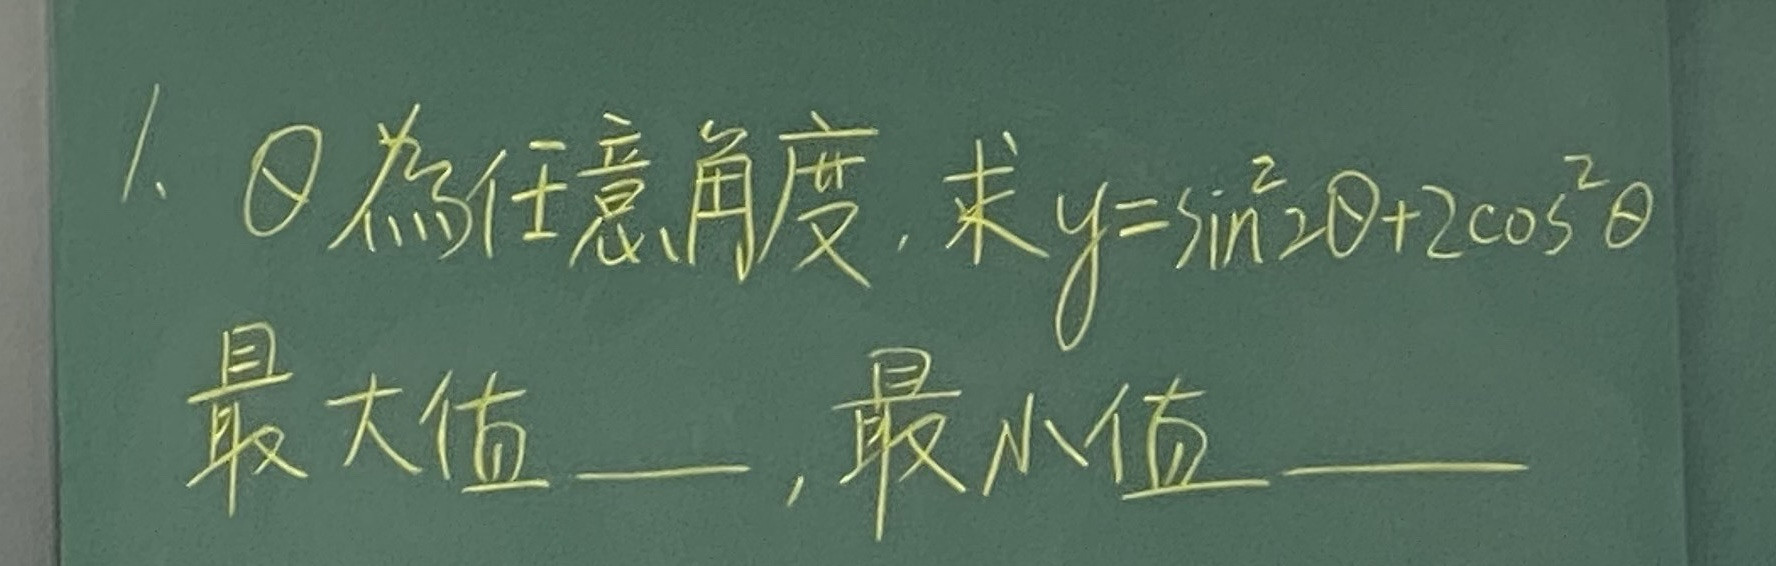 1. θ為任意角度,求y=sin²2θ+2cos²θ
最大值____,最小值____